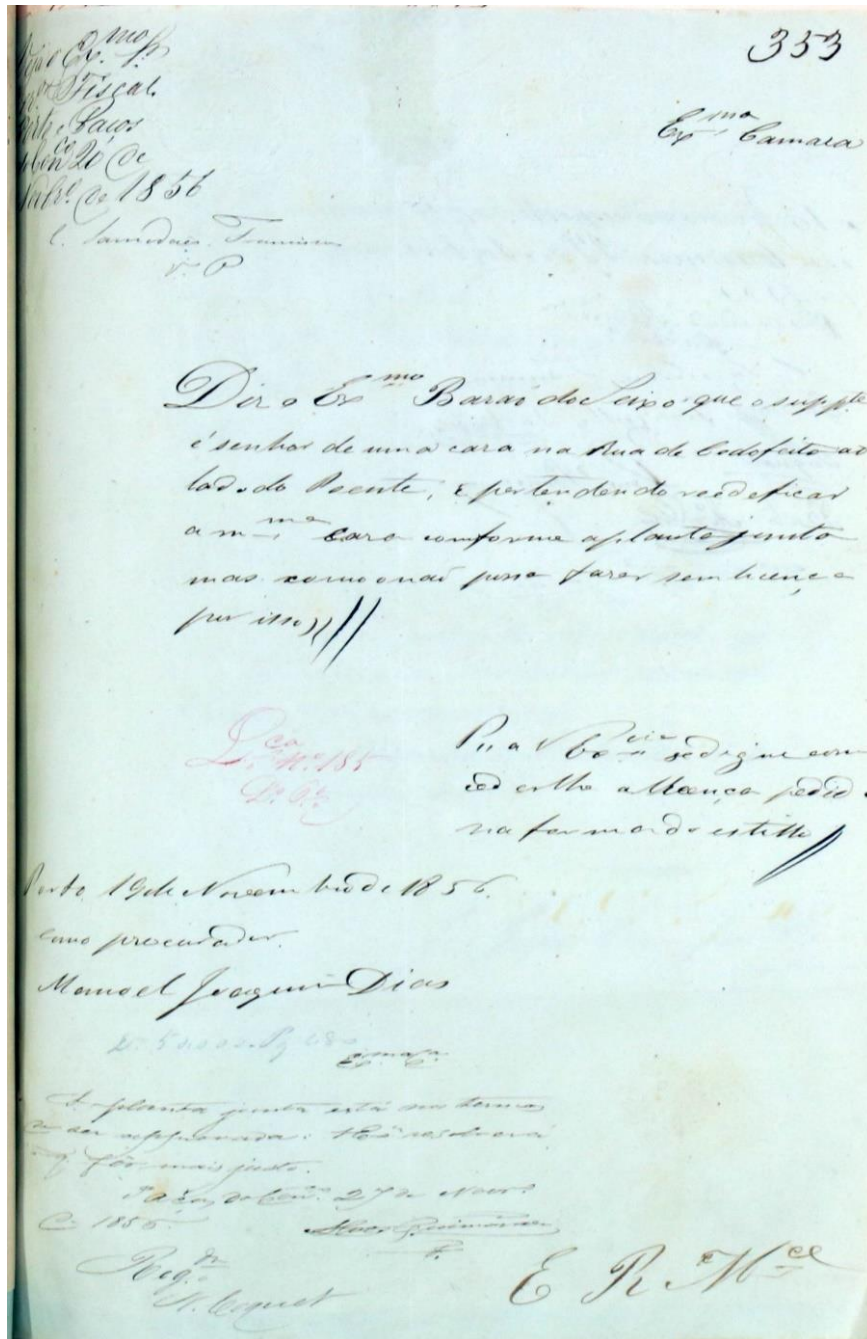 353
Ex.ma Camara
Ex.mo
Fiscal
Paços
20 de
de 1856
V. P.
Diz o Ex.mo Barão do Seixo que o supp.te
é senhor de uma caza na Rua de Cedofeita ao
lado do Poente, e pertendendo reedeficar
a m.ma caza conforme a planta junta
mas como o não possa fazer sem licença
por isso
P. a V. Ex.cia se digne con
ceder lhe a licença pedida
na forma do estillo
L.ça N.º 185
Porto 19 de Novembro de 1856.
como procurador.
Manoel Joaquim Dias
Ex.ma C.
A planta junta está nos termos
de ser approvada: V. Ex.ª resolverá
o q. fôr mais justo.
Paços do Conc.º 27 de Novbr.º
de 1856.
Guimarães
F.
Reg.da
E R M.ce